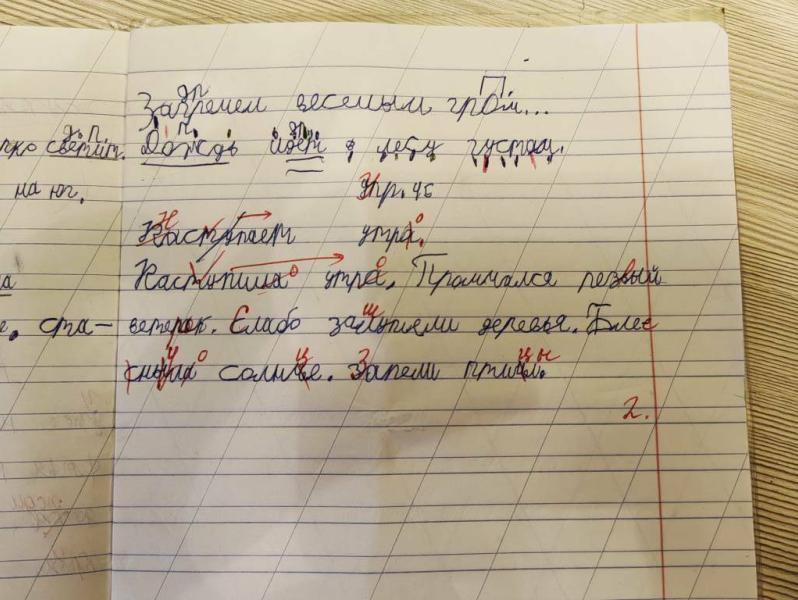 д.п.
светит.
на юг.
ста-
д п П
Загремел веселым гром...
п. дп
Дождь идёт з небу густой.
Упр. 46
Наступает утра.
Наступила утра. Промчался резвый
ветерок. Слабо зашумели деревья. Блес
солнце. Запели птицы.
2.